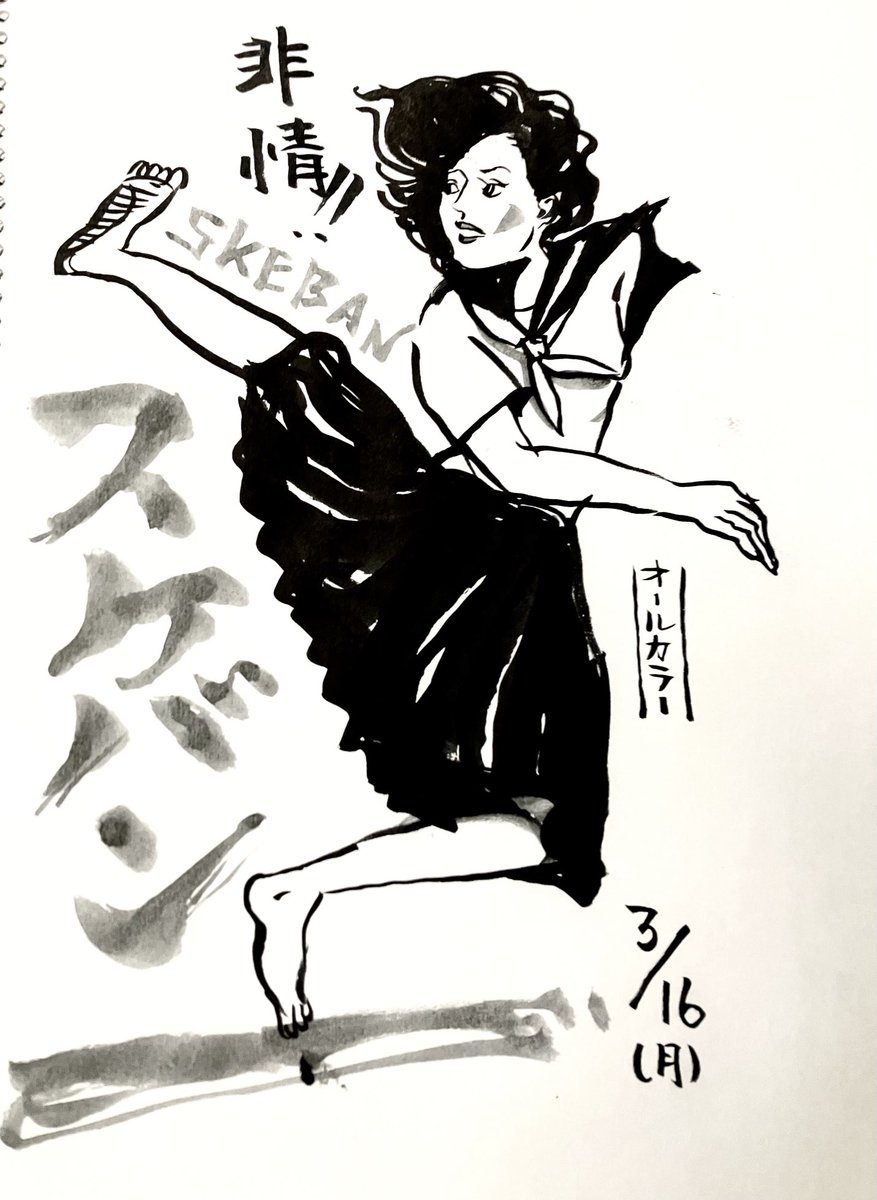 非情!!
SKEBAN
スケバン
オールカラー
3/16
(月)